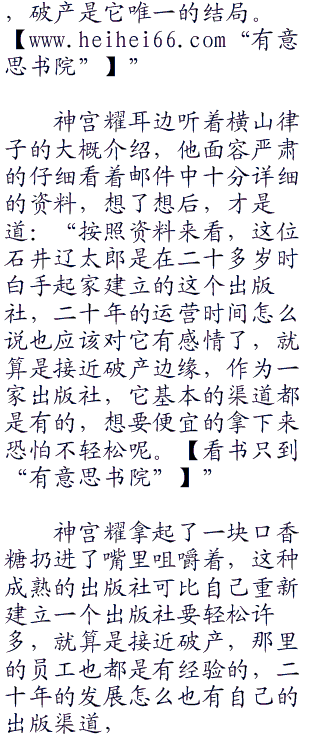 ，破产是它唯一的结局。
【www.heihei66.com“有意
思书院”】”
神宫耀耳边听着横山律
子的大概介绍，他面容严肃
的仔细看着邮件中十分详细
的资料，想了想后，才是
道：“按照资料来看，这位
石井辽太郎是在二十多岁时
白手起家建立的这个出版
社，二十年的运营时间怎么
说也应该对它有感情了，就
算是接近破产边缘，作为一
家出版社，它基本的渠道都
是有的，想要便宜的拿下来
恐怕不轻松呢。【看书只到
“有意思书院”】”
神宫耀拿起了一块口香
糖扔进了嘴里咀嚼着，这种
成熟的出版社可比自己重新
建立一个出版社要轻松许
多，就算是接近破产，那里
的员工也都是有经验的，二
十年的发展怎么也有自己的
出版渠道，